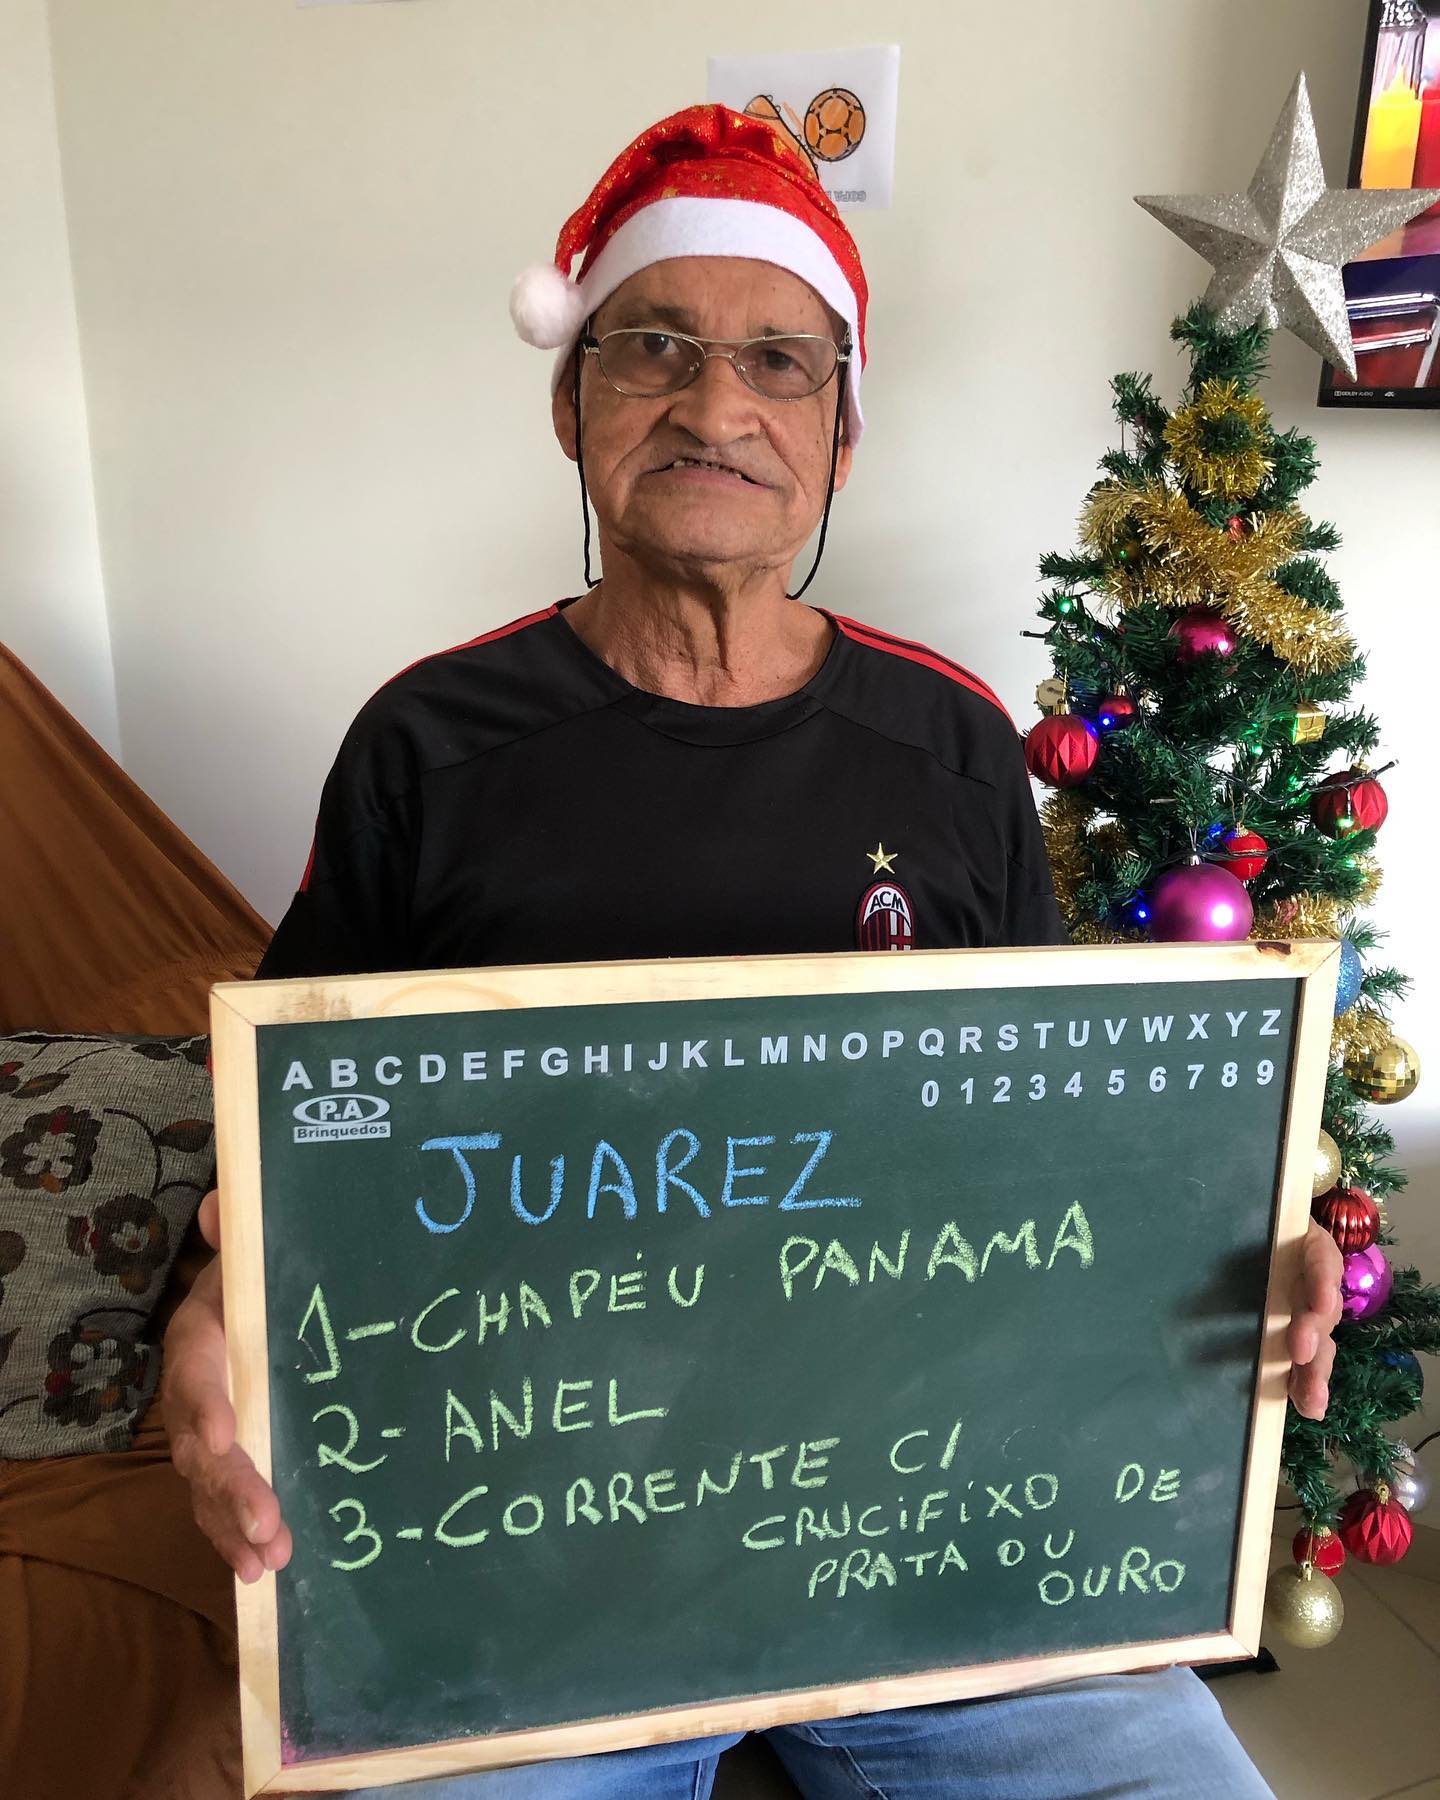 COPA
DOLBY AUDIO 4K
ACM
A B C D E F G H I J K L M N O P Q R S T U V W X Y Z
0 1 2 3 4 5 6 7 8 9
P.A
Brinquedos
JUAREZ
1-CHAPÉU PANAMA
2-ANEL
3-CORRENTE C/
CRUCIFIXO DE
PRATA OU
OURO